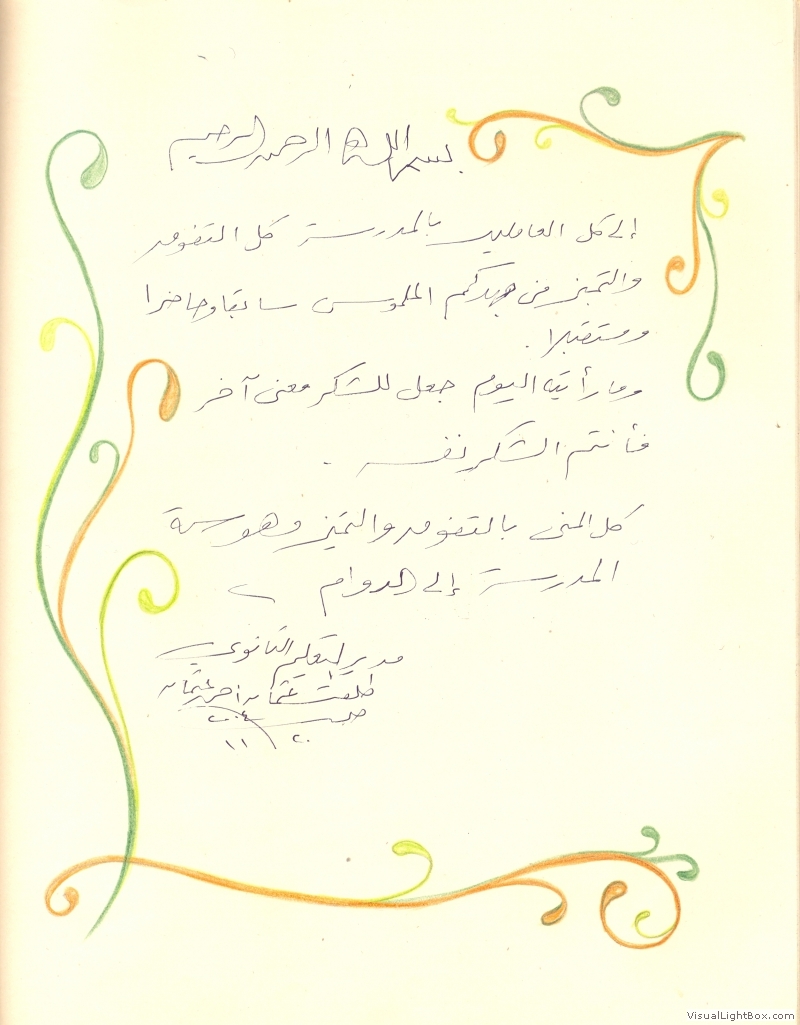 بسم الله الرحمن الرحيم
إلى كل العاملين بالمدرسة كل التفوق
والتميز من جهدكم الملموس سابقا وحاضرا
ومستقبلا .
وما رأيته اليوم جعل للشكر معنى آخر
فأنتم الشكر نفسه .
كل المنى بالتفوق والتميز وهو سمة
المدرسة إلى الدوام
مدير التعليم الثانوي
طلعت عثمان أحمد عثمان
٢٠
١١
VisualLightBox.com